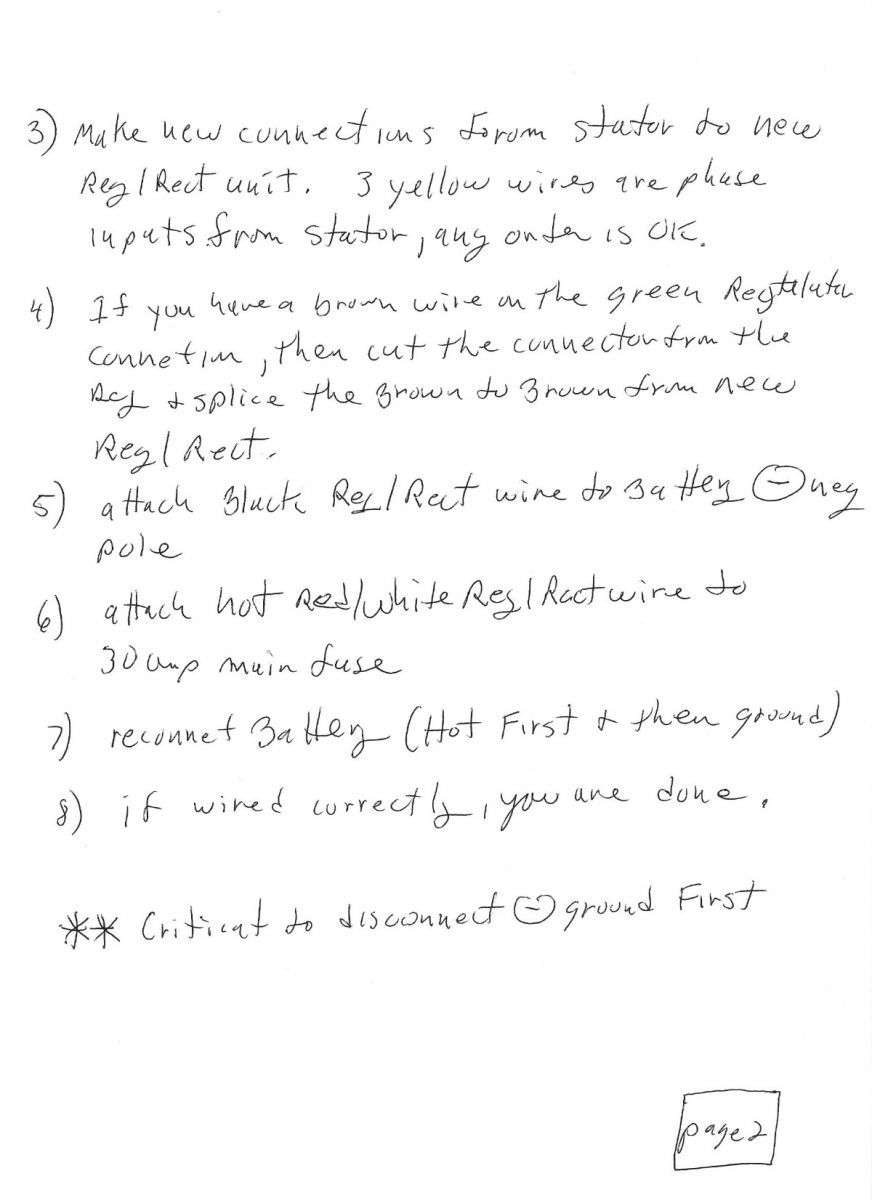 3) Make new connections forom stator to new
Reg/Rect unit. 3 yellow wires are phase
inputs from stator, any order is OK.
4) If you have a brown wire on the green
connetion, then cut the connector from the
Reg & splice the Brown to Brown from new
Reg/Rect.
5) attach Black Reg/Rect wire to Battery ⊖ neg
pole
6) attach hot Red/white Reg/Rect wire to
30 amp main fuse
7) reconnet Battery (Hot First & then ground)
8) if wired correctly, you are done.
** Critical to disconnect ⊖ ground First
page 2